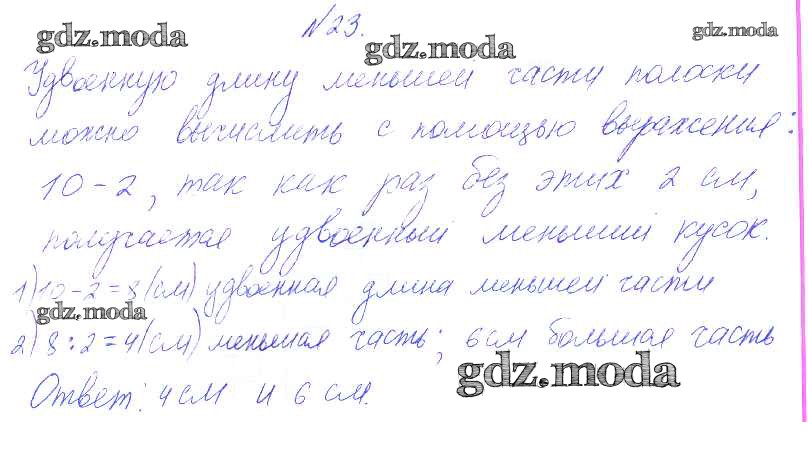 №23.
gdz.moda gdz.moda gdz.moda
Удвоенную длину меньшей части полоски
можно вычислить с помощью выражения:
10-2, так как раз без этих 2 см,
получается удвоенный меньший кусок.
1) 10-2=8(см) удвоенная длина меньшей части
gdz.moda
2) 8:2=4(см) меньшая часть; 6см большая часть
gdz.moda
Ответ: 4см и 6 см.